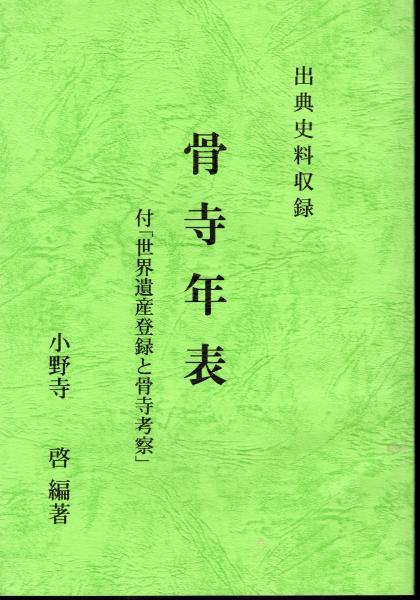 出典史料収録
骨寺年表
付「世界遺産登録と骨寺考察」
小野寺 啓 編著